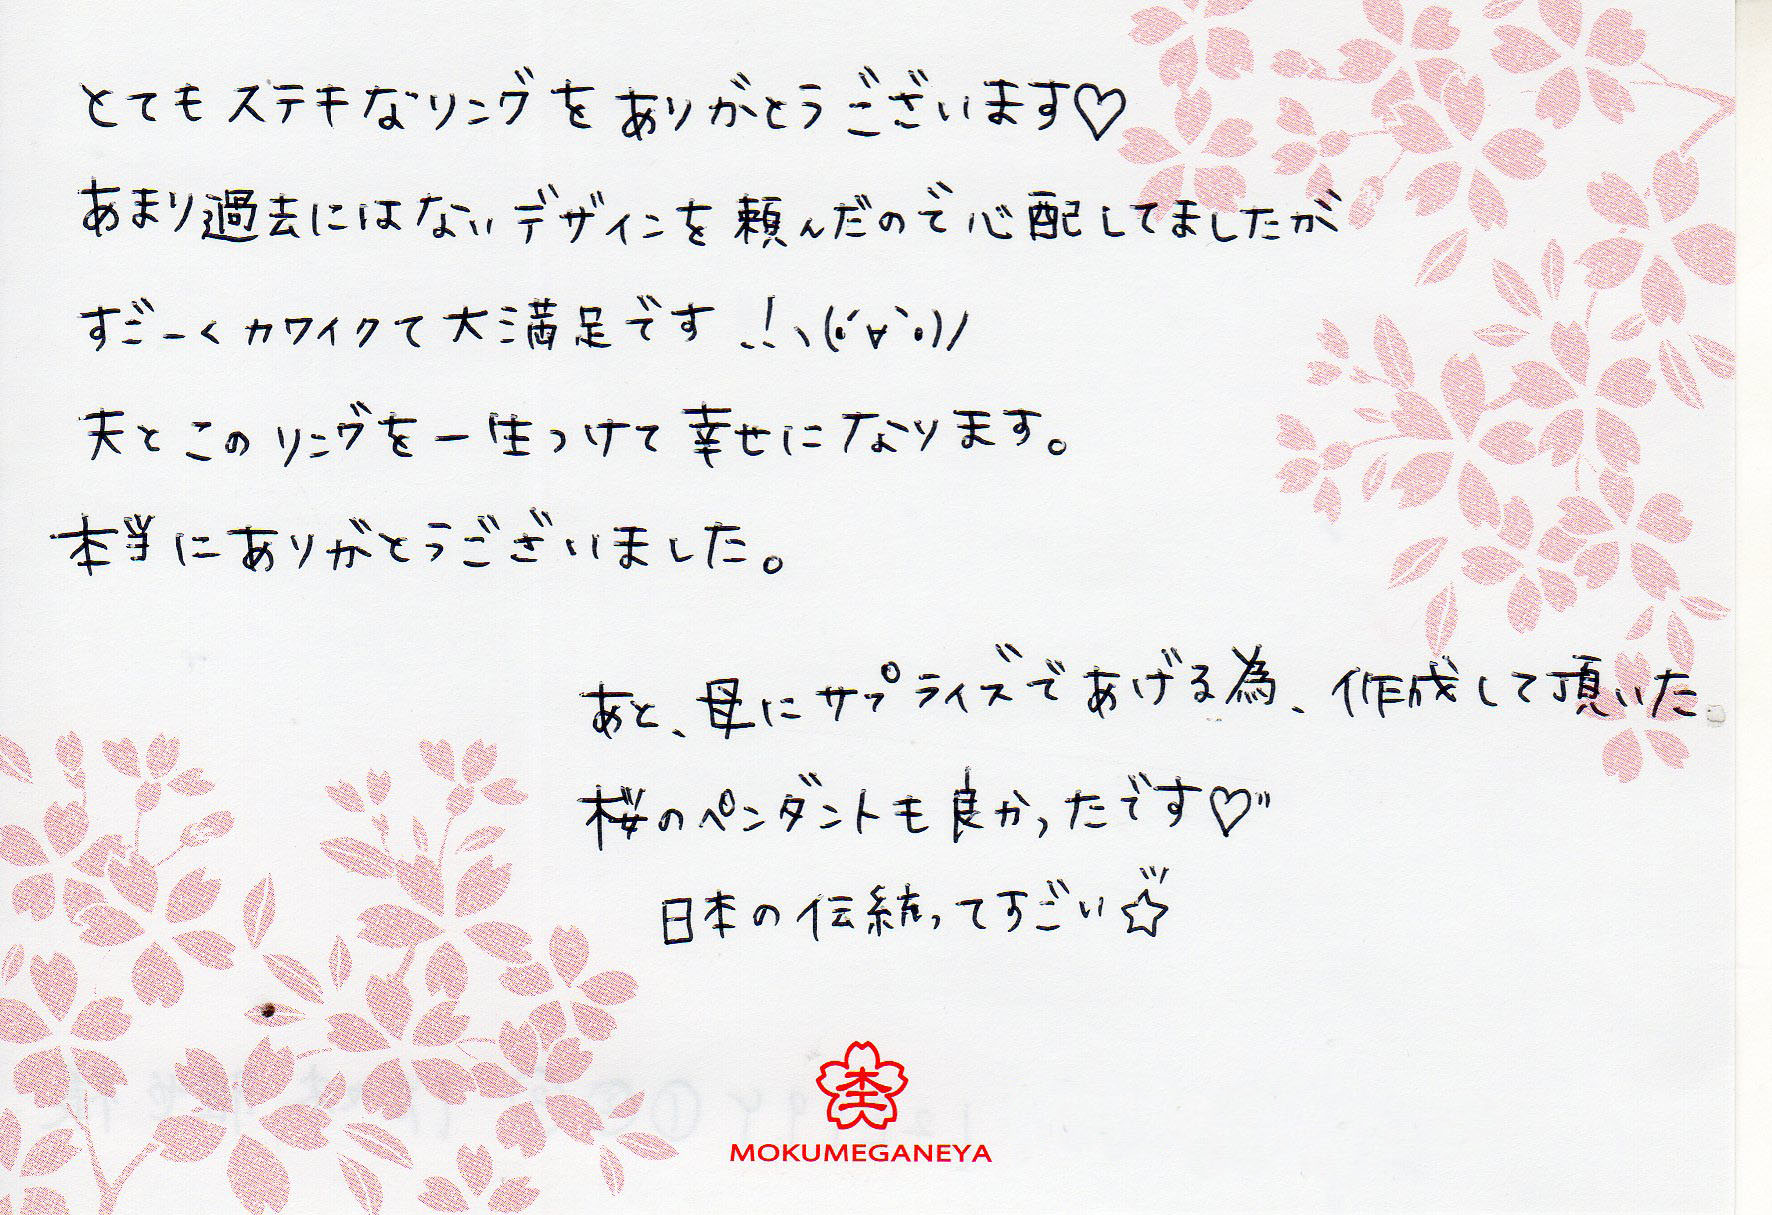 とてもステキなリングをありがとうございます♡
あまり過去にはないデザインを頼んだので心配してましたが
すご〜くカワイクて大満足です！ヽ(•́∀•̀)ﾉ
夫とこのリングを一生つけて幸せになります。
本当にありがとうございました。
あと、母にサプライズであげる為、作成して頂いた
桜のペンダントも良かったです♡"
日本の伝統ってすごい☆
MOKUMEGANEYA